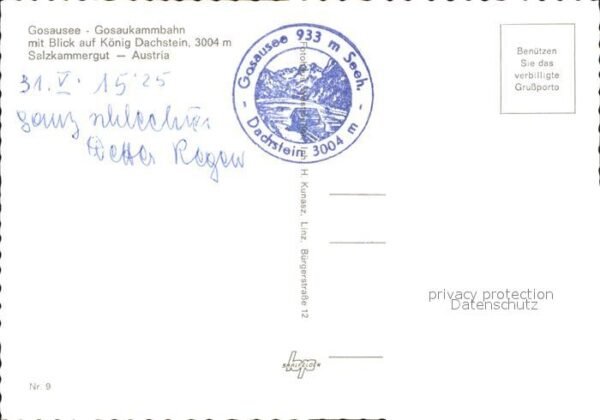 Gosausee - Gosaukammbahn
mit Blick auf König Dachstein, 3004 m
Salzkammergut — Austria
31. V. 15 25
ganz schlechtes
Wetter Regen
Gosausee 933 m Seeh.
- Dachstein 3004 m -
H. Kunasz, Linz, Bürgerstraße 12
Benützen
Sie das
verbilligte
Grußporto
privacy protection
Datenschutz
Nr. 9